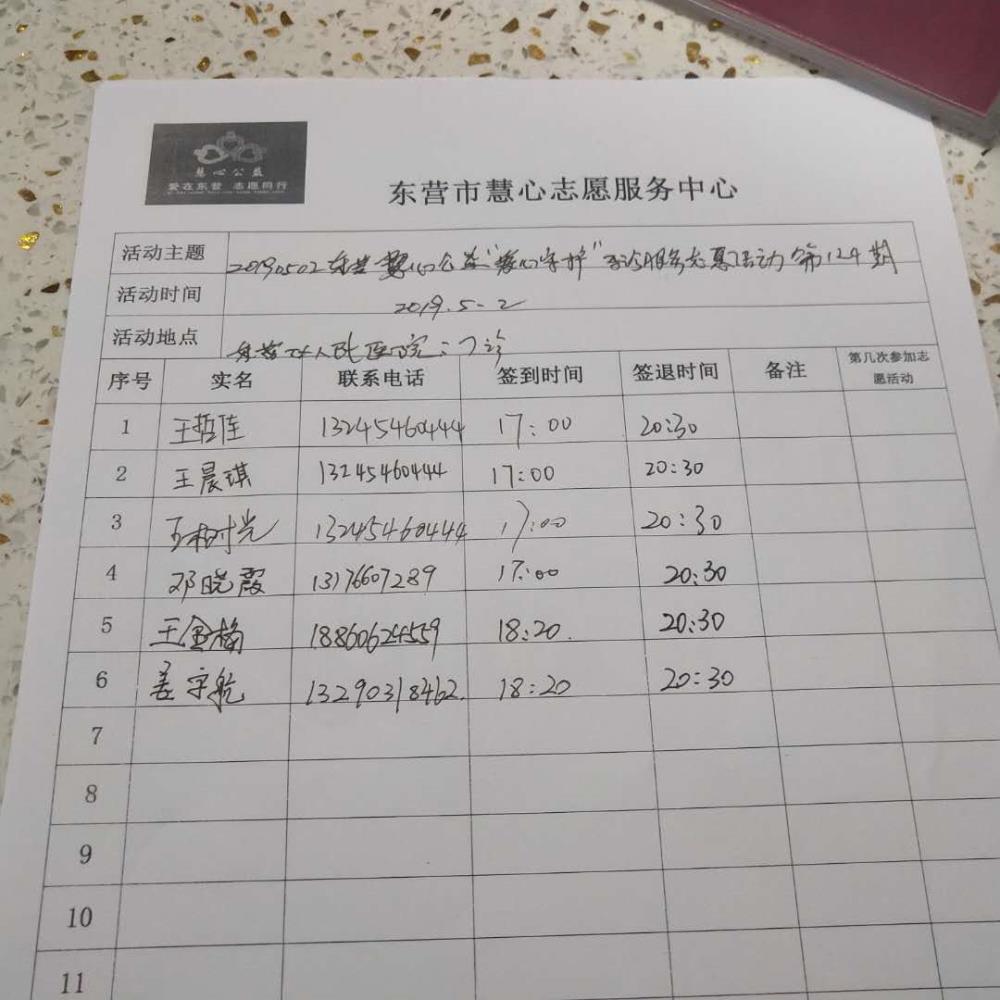 慧心公益
爱在东营 志愿同行
东营市慧心志愿服务中心
活动主题 20190502东营慧心公益“慧心守护”导诊服务志愿活动第124期
活动时间 2019.5-2
活动地点 东营市人民医院:门诊
序号 实名 联系电话 签到时间 签退时间 备注 第几次参加志
愿活动
1 王哲佳 13245460444 17:00 20:30
2 王晨琪 13245460444 17:00 20:30
3 时光 13245460444 17:00 20:30
4 邓晓霞 13176607289 17:00 20:30
5 王金梅 18860624559 18:20. 20:30
6 姜宇航 13290318462. 18:20 20:30
7
8
9
10
11